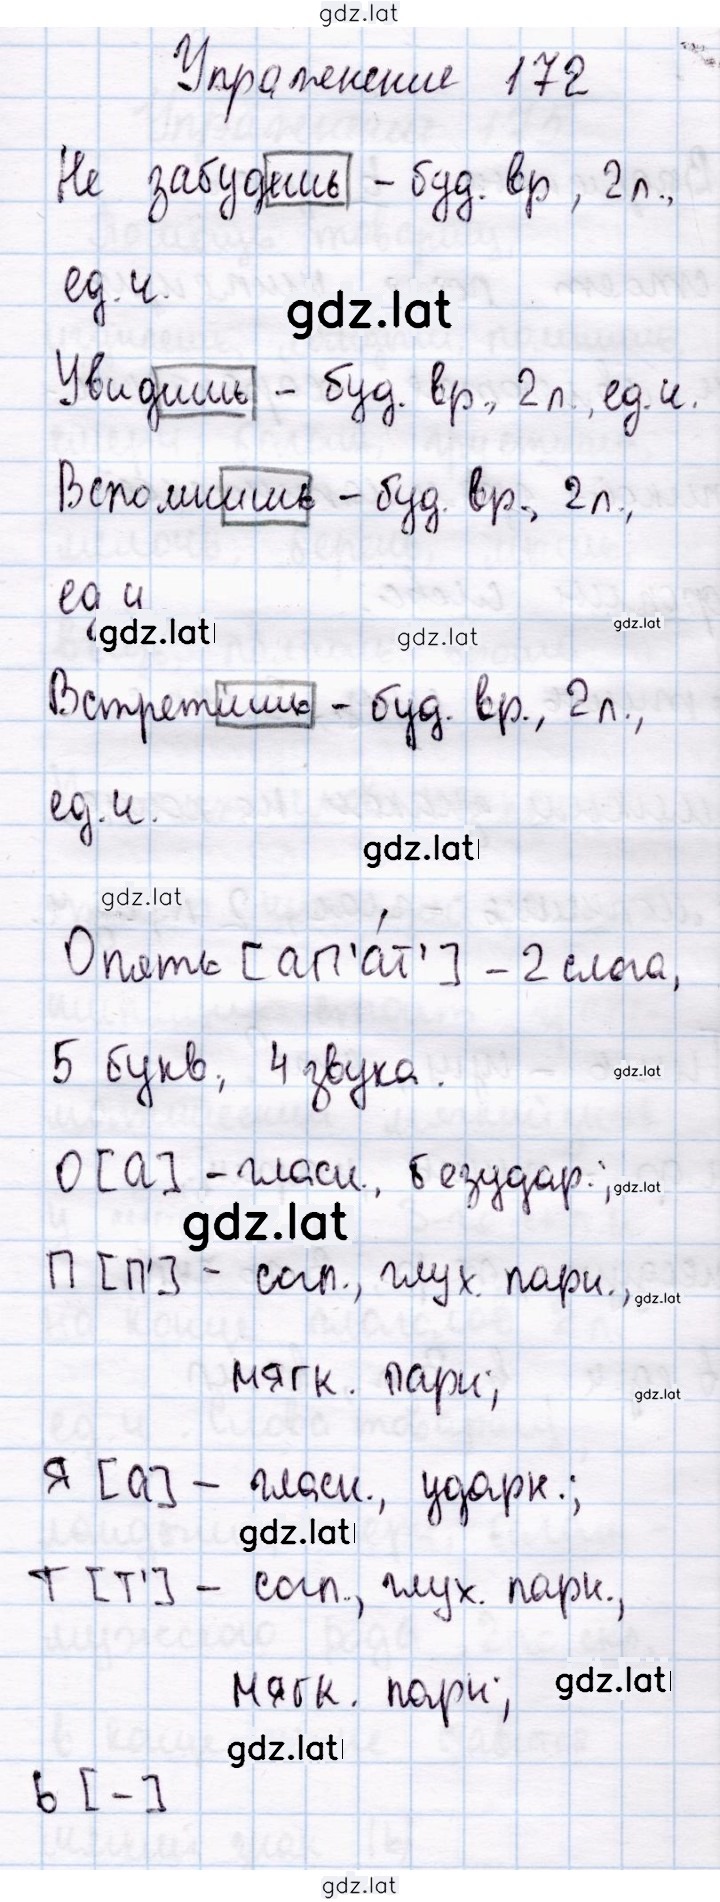 gdz.lat
Упражнение 172
Не забудешь – буд. вр, 2л.,
ед.ч.
gdz.lat
Увидишь – буд. вр., 2л., ед.ч.
Вспомнишь – буд. вр., 2л.,
ед ч
gdz.lat
gdz.lat
gdz.lat
Встретишь – буд. вр., 2л.,
ед.ч.
gdz.lat
gdz.lat
Опять [ап'а́т'] – 2 слога,
5 букв, 4 звука.
gdz.lat
О [а] – гласн., безудар.;
gdz.lat
gdz.lat
П [п'] – согл., глух. парн.,
gdz.lat
мягк. парн;
gdz.lat
Я [а] – гласн., ударн.;
gdz.lat
Т [т'] – согл., глух. парн.,
мягк. парн;
gdz.lat
gdz.lat
ь [-]
gdz.lat